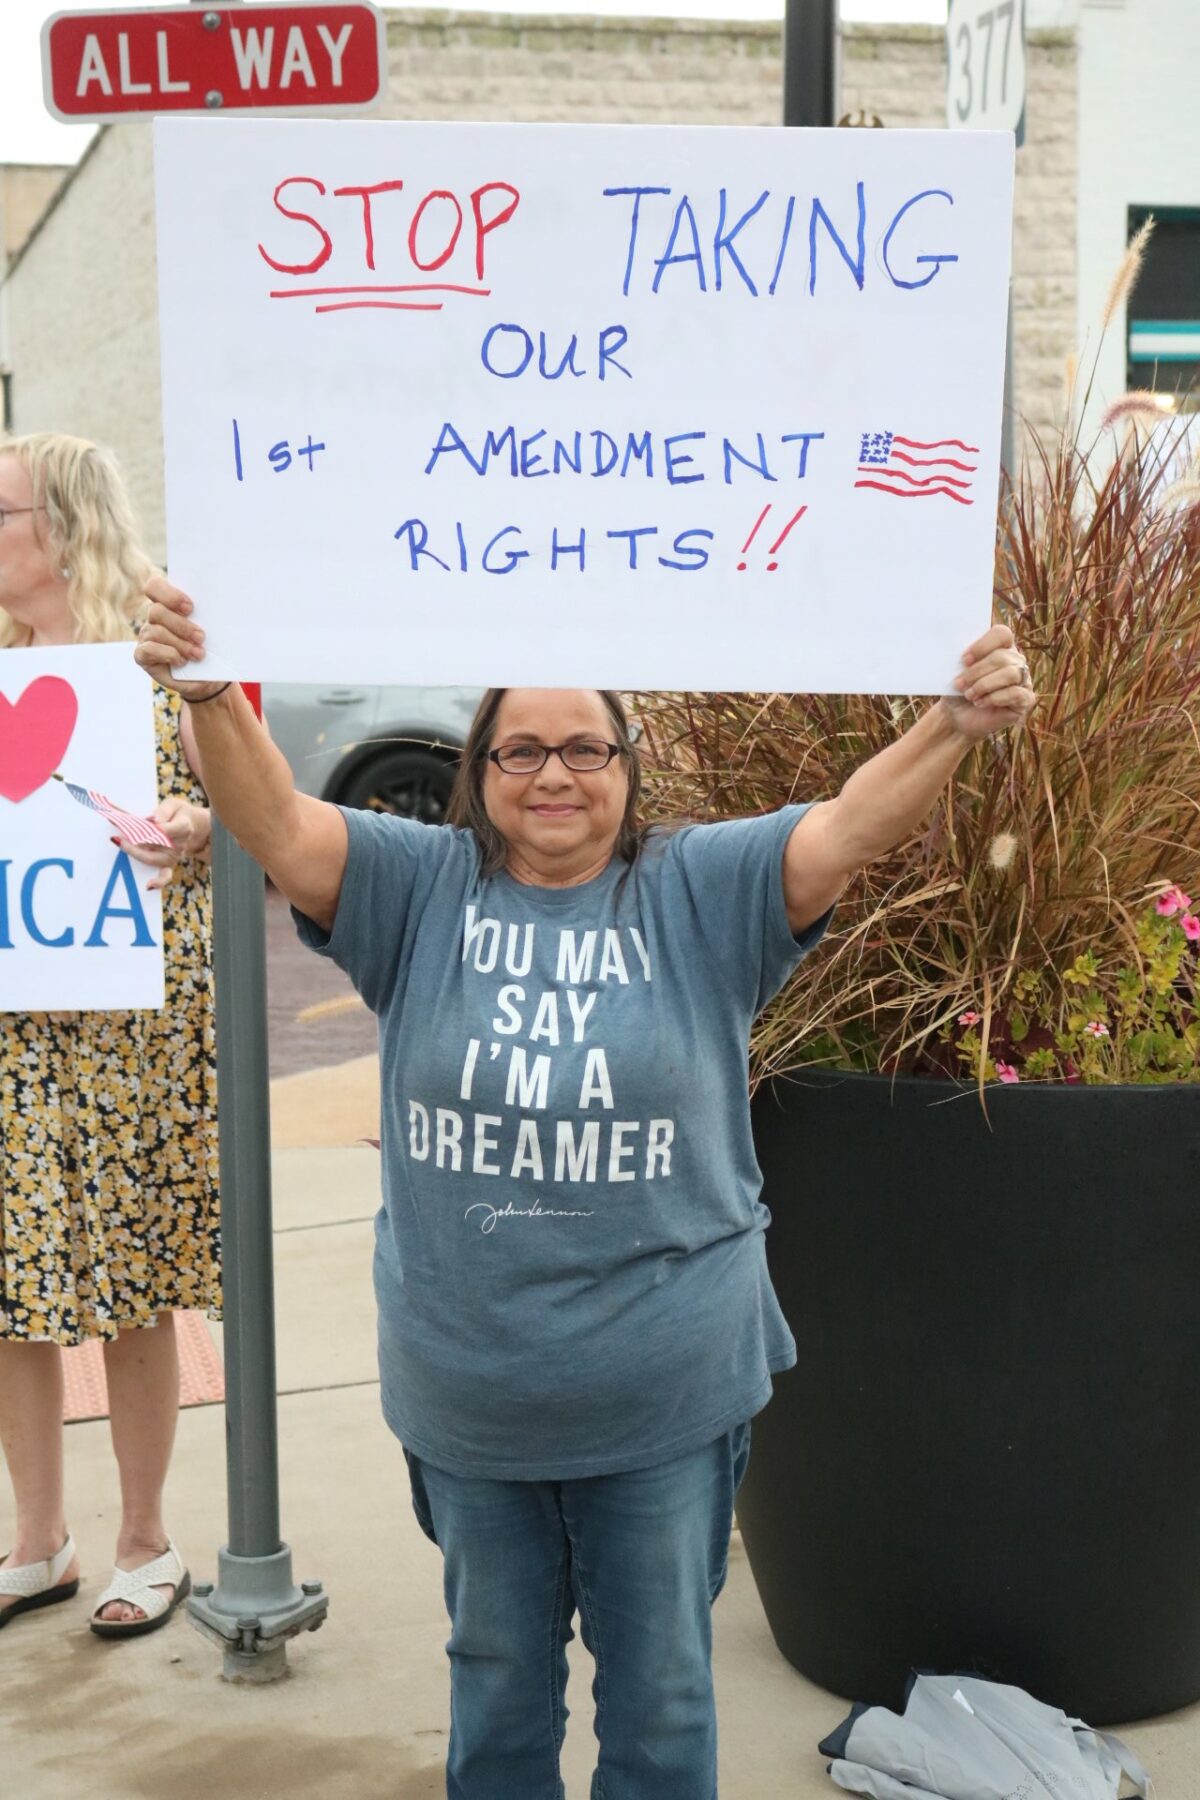 ALL WAY
377
STOP TAKING
OUR
1st AMENDMENT
RIGHTS!!
ICA
YOU MAY
SAY
I'M A
DREAMER
John Lennon